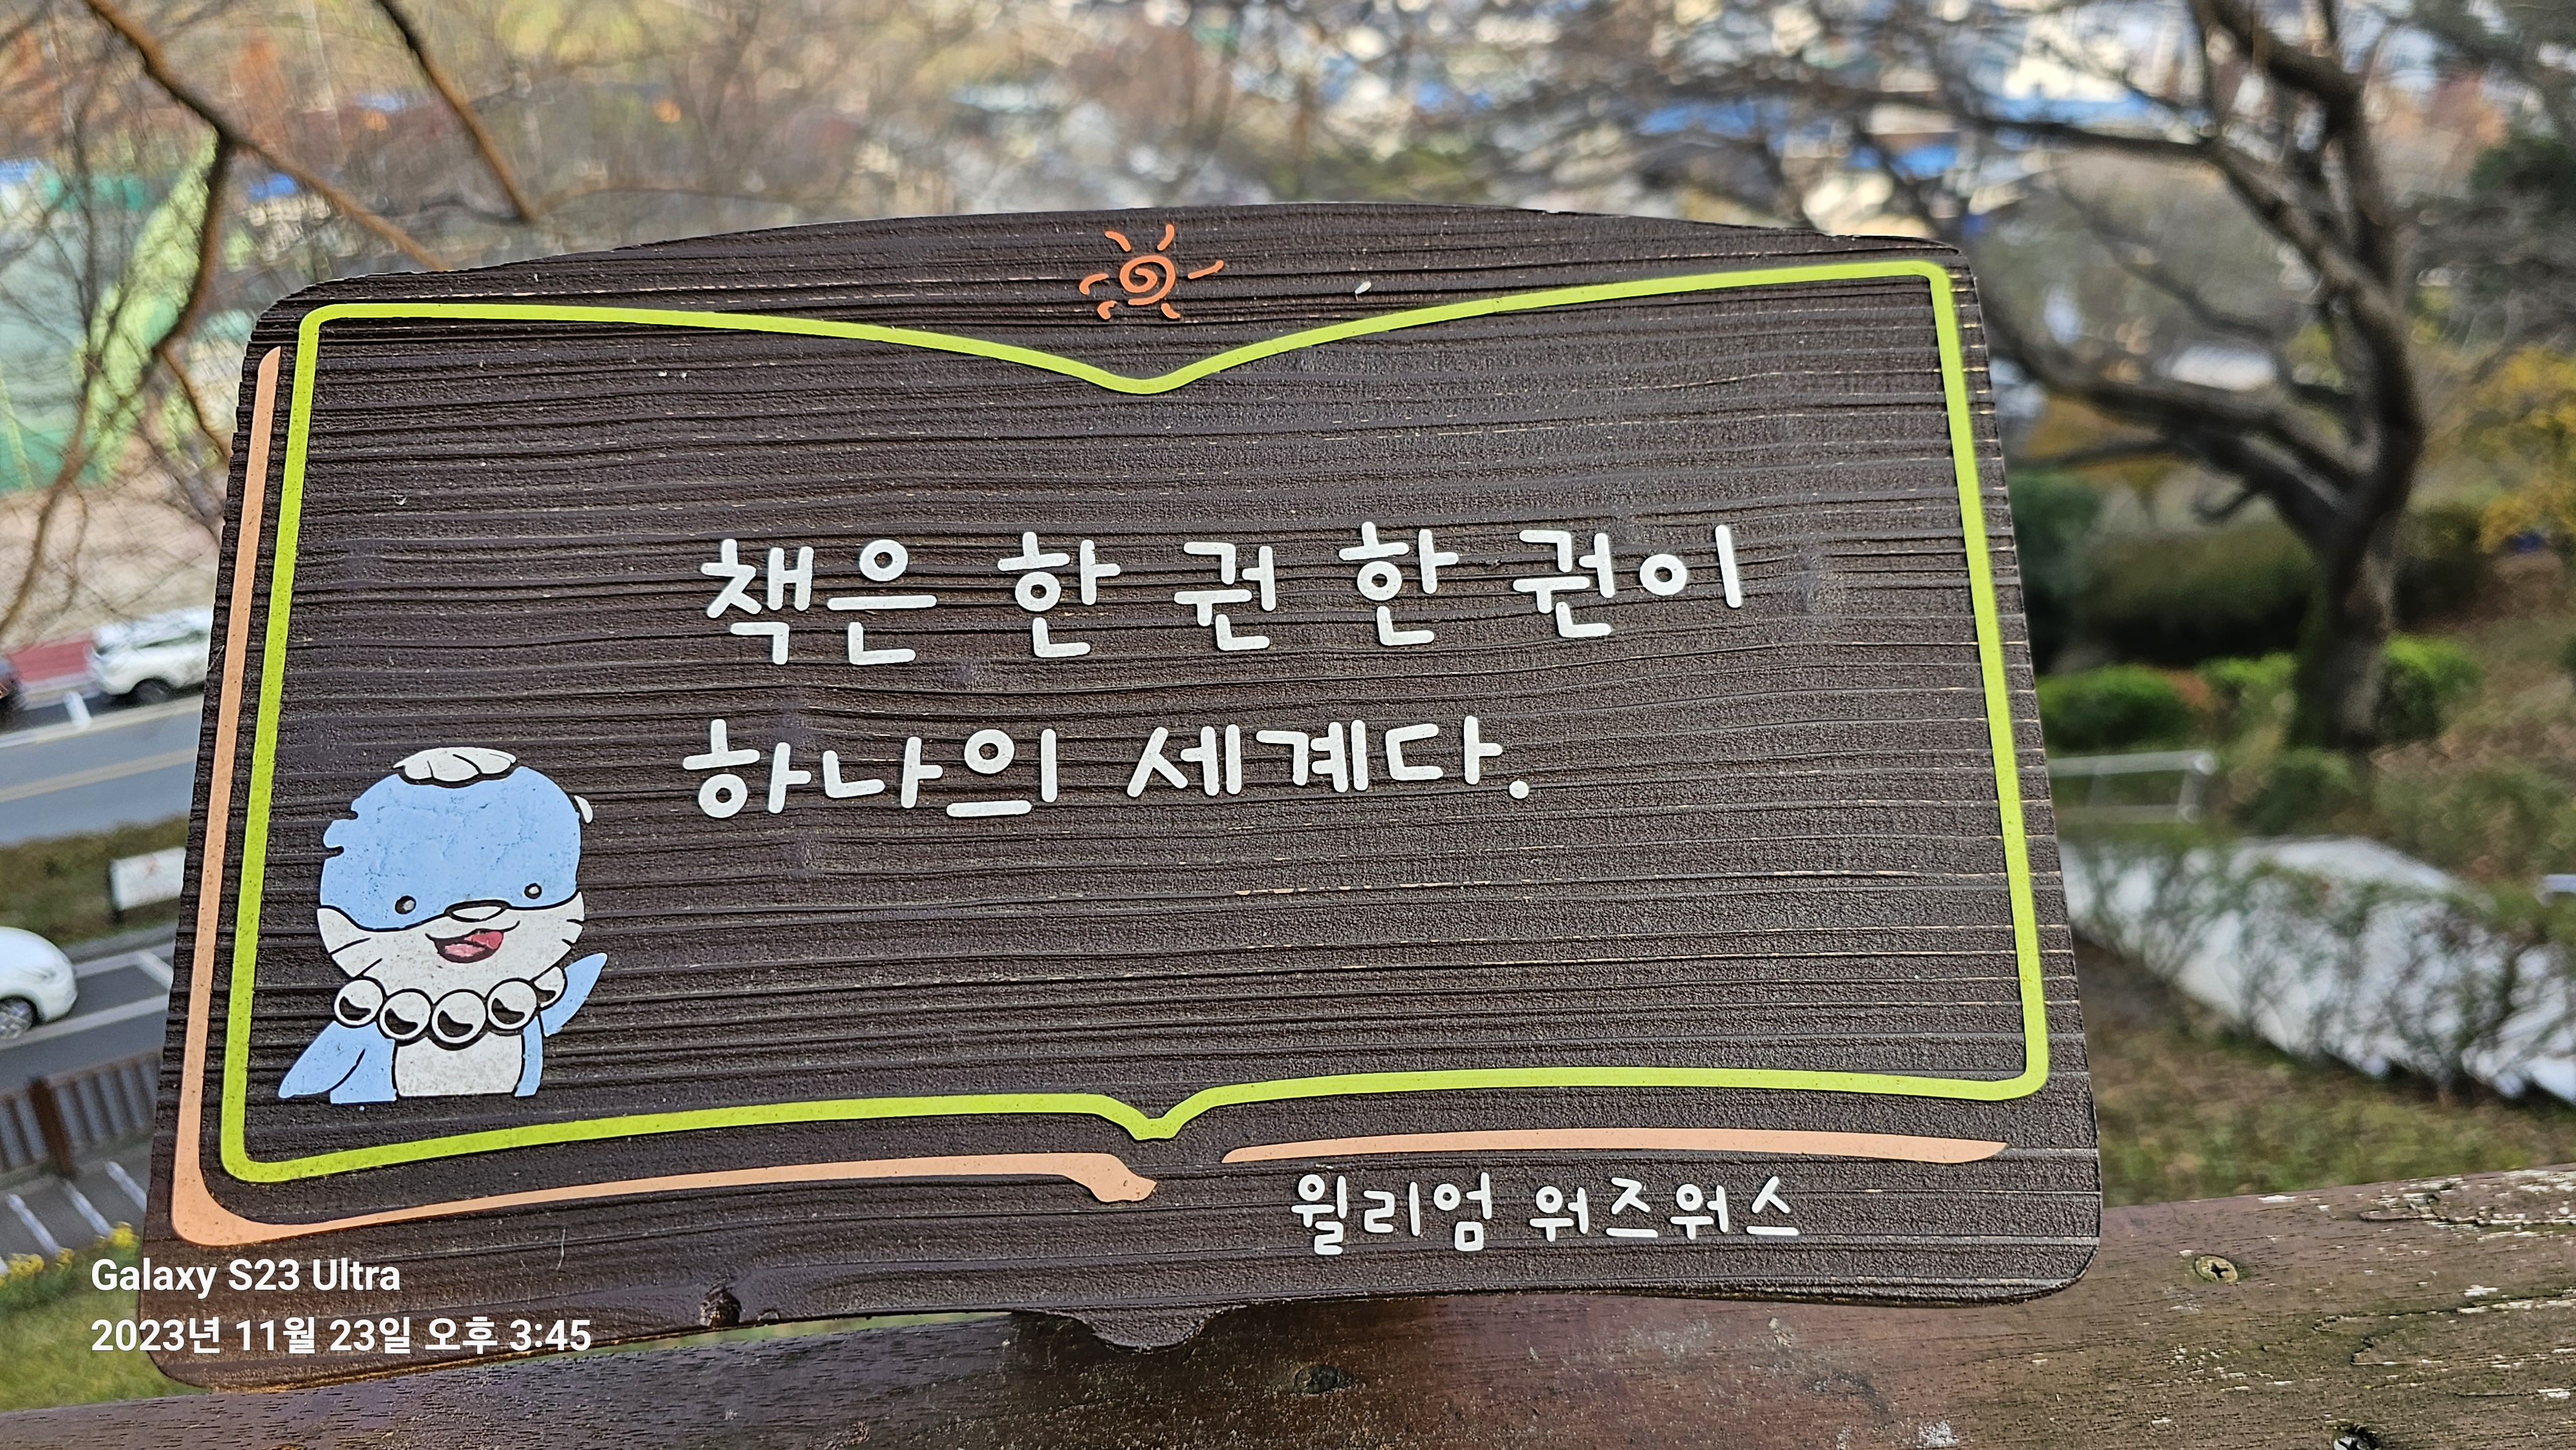 책은 한 권 한 권이
하나의 세계다.
윌리엄 워즈워스
Galaxy S23 Ultra
2023년 11월 23일 오후 3:45